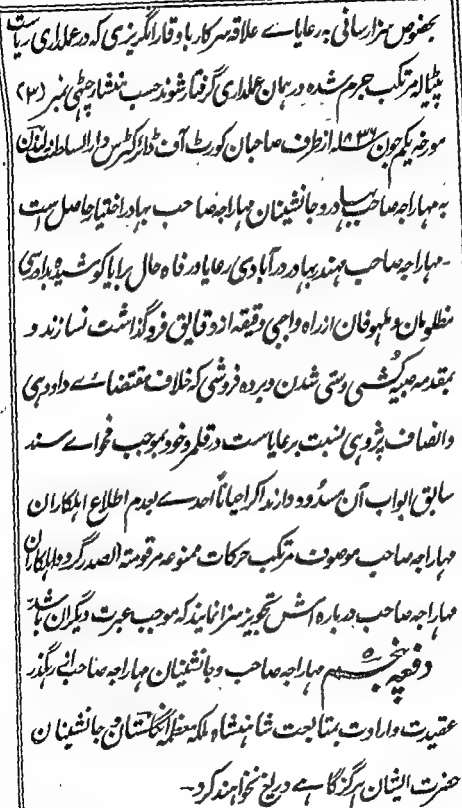 بخصوص سزا رسانی به رعایاے علاقه سرکار باوقار انگریزی که در عملداری ریاست
پٹیاله مرتکب جرم شده در همان عملداری گرفتار شوند حسب منشار چٹهی نمبر (۳)
مورخه یکم جون ۱۸۳۶ از طرف صاحبان کورٹ آف ڈائرکٹرس دارالسلطنت لندن
به مهاراجه صاحب بهادر و جانشینان مهاراجه صاحب بهادر اختیار حاصل است
- مهاراجه صاحب مهندر بهادر در آبادی رعایا و رفاه حال برایا کوشیده بدادرسی
مظلومان و ملهوفان از راه واجبی دقیقه از دقایق فروگذاشت نسازند و
بمقدمه صبیه کُشی و ستی شدن و برده فروشی که خلاف مقتضاے دادرهی
و انصاف پژوهی نسبت برعایاست در قلمرو خود بموجب فحواے سند
سابق ابواب آن مسدود دارند اگر احیاناً احدے بعدم اطلاع اهلکاران
مهاراجه صاحب موصوف مرتکب حرکات ممنوعه مرقومة الصدر گردد اهلکاران
مهاراجه صاحب درباره اش تجویز سزا نمایند که موجب عبرت دیگران باشد
دفعه پنجم مهاراجه صاحب و جانشینان مهاراجه صاحب از رهگذر
عقیدت و ارادت بمتابعت شاهنشاه ملکه معظمه انگلستان و جانشینان
حضرت ایشان هرگز گاهے دریغ نخواهند کرد -